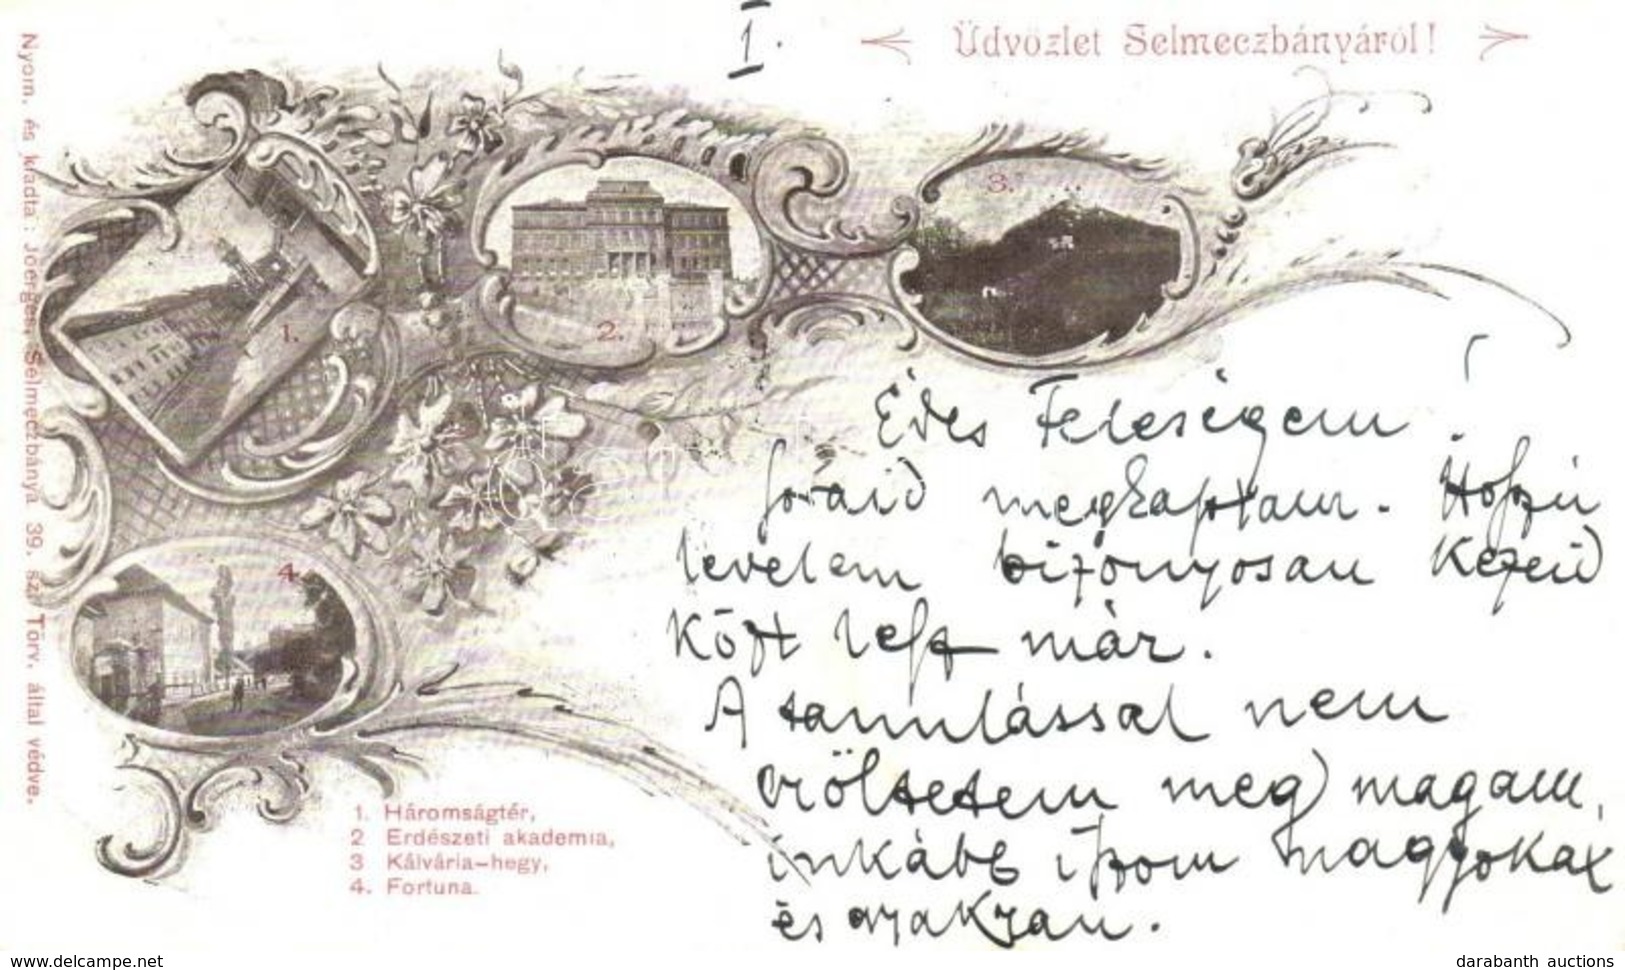 I.
Üdvözlet Selmeczbányáról!
Nyom. és kiadta: Joerges, Selmeczbánya 39. sz. Törv. által védve.
1.
2.
3.
4.
Édes Feleségem!
Soraid megkaptam. Hosszú
levelem bizonyosan kezeid
közt lesz már.
A tanulással nem
öltetem meg magam,
inkább írom nagyokat
és gyakran.
1. Háromságtér,
2 Erdészeti akademia,
3 Kálvária-hegy,
4. Fortuna.
www.delcampe.net
darabanth auctions